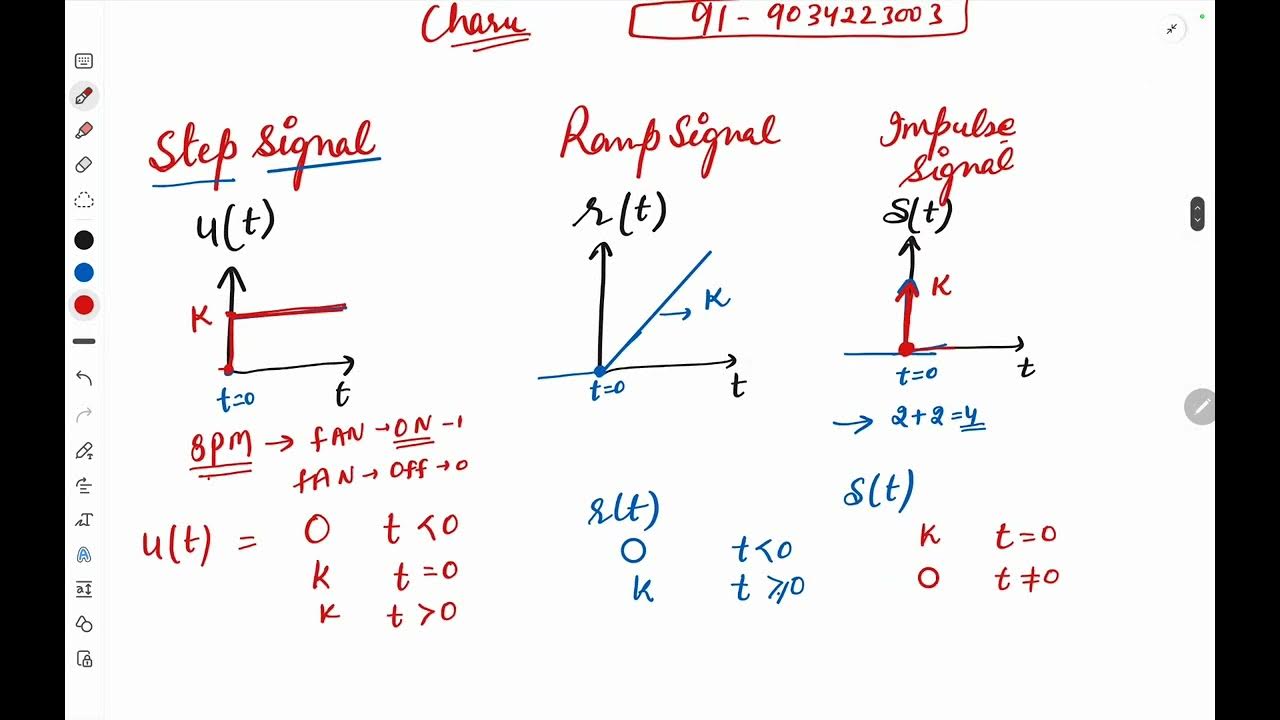 Charu
91 - 9034223003
Step Signal
u(t)
K
t=0
t
8PM → fAN → ON - 1
fAN → Off → 0
u(t) = 0 t < 0
K t = 0
K t > 0
Ramp Signal
r(t)
K
t=0
t
r(t)
0 t < 0
K t ≥ 0
Impulse
Signal
δ(t)
K
t=0
t
→ 2+2=4
δ(t)
K t = 0
0 t ≠ 0